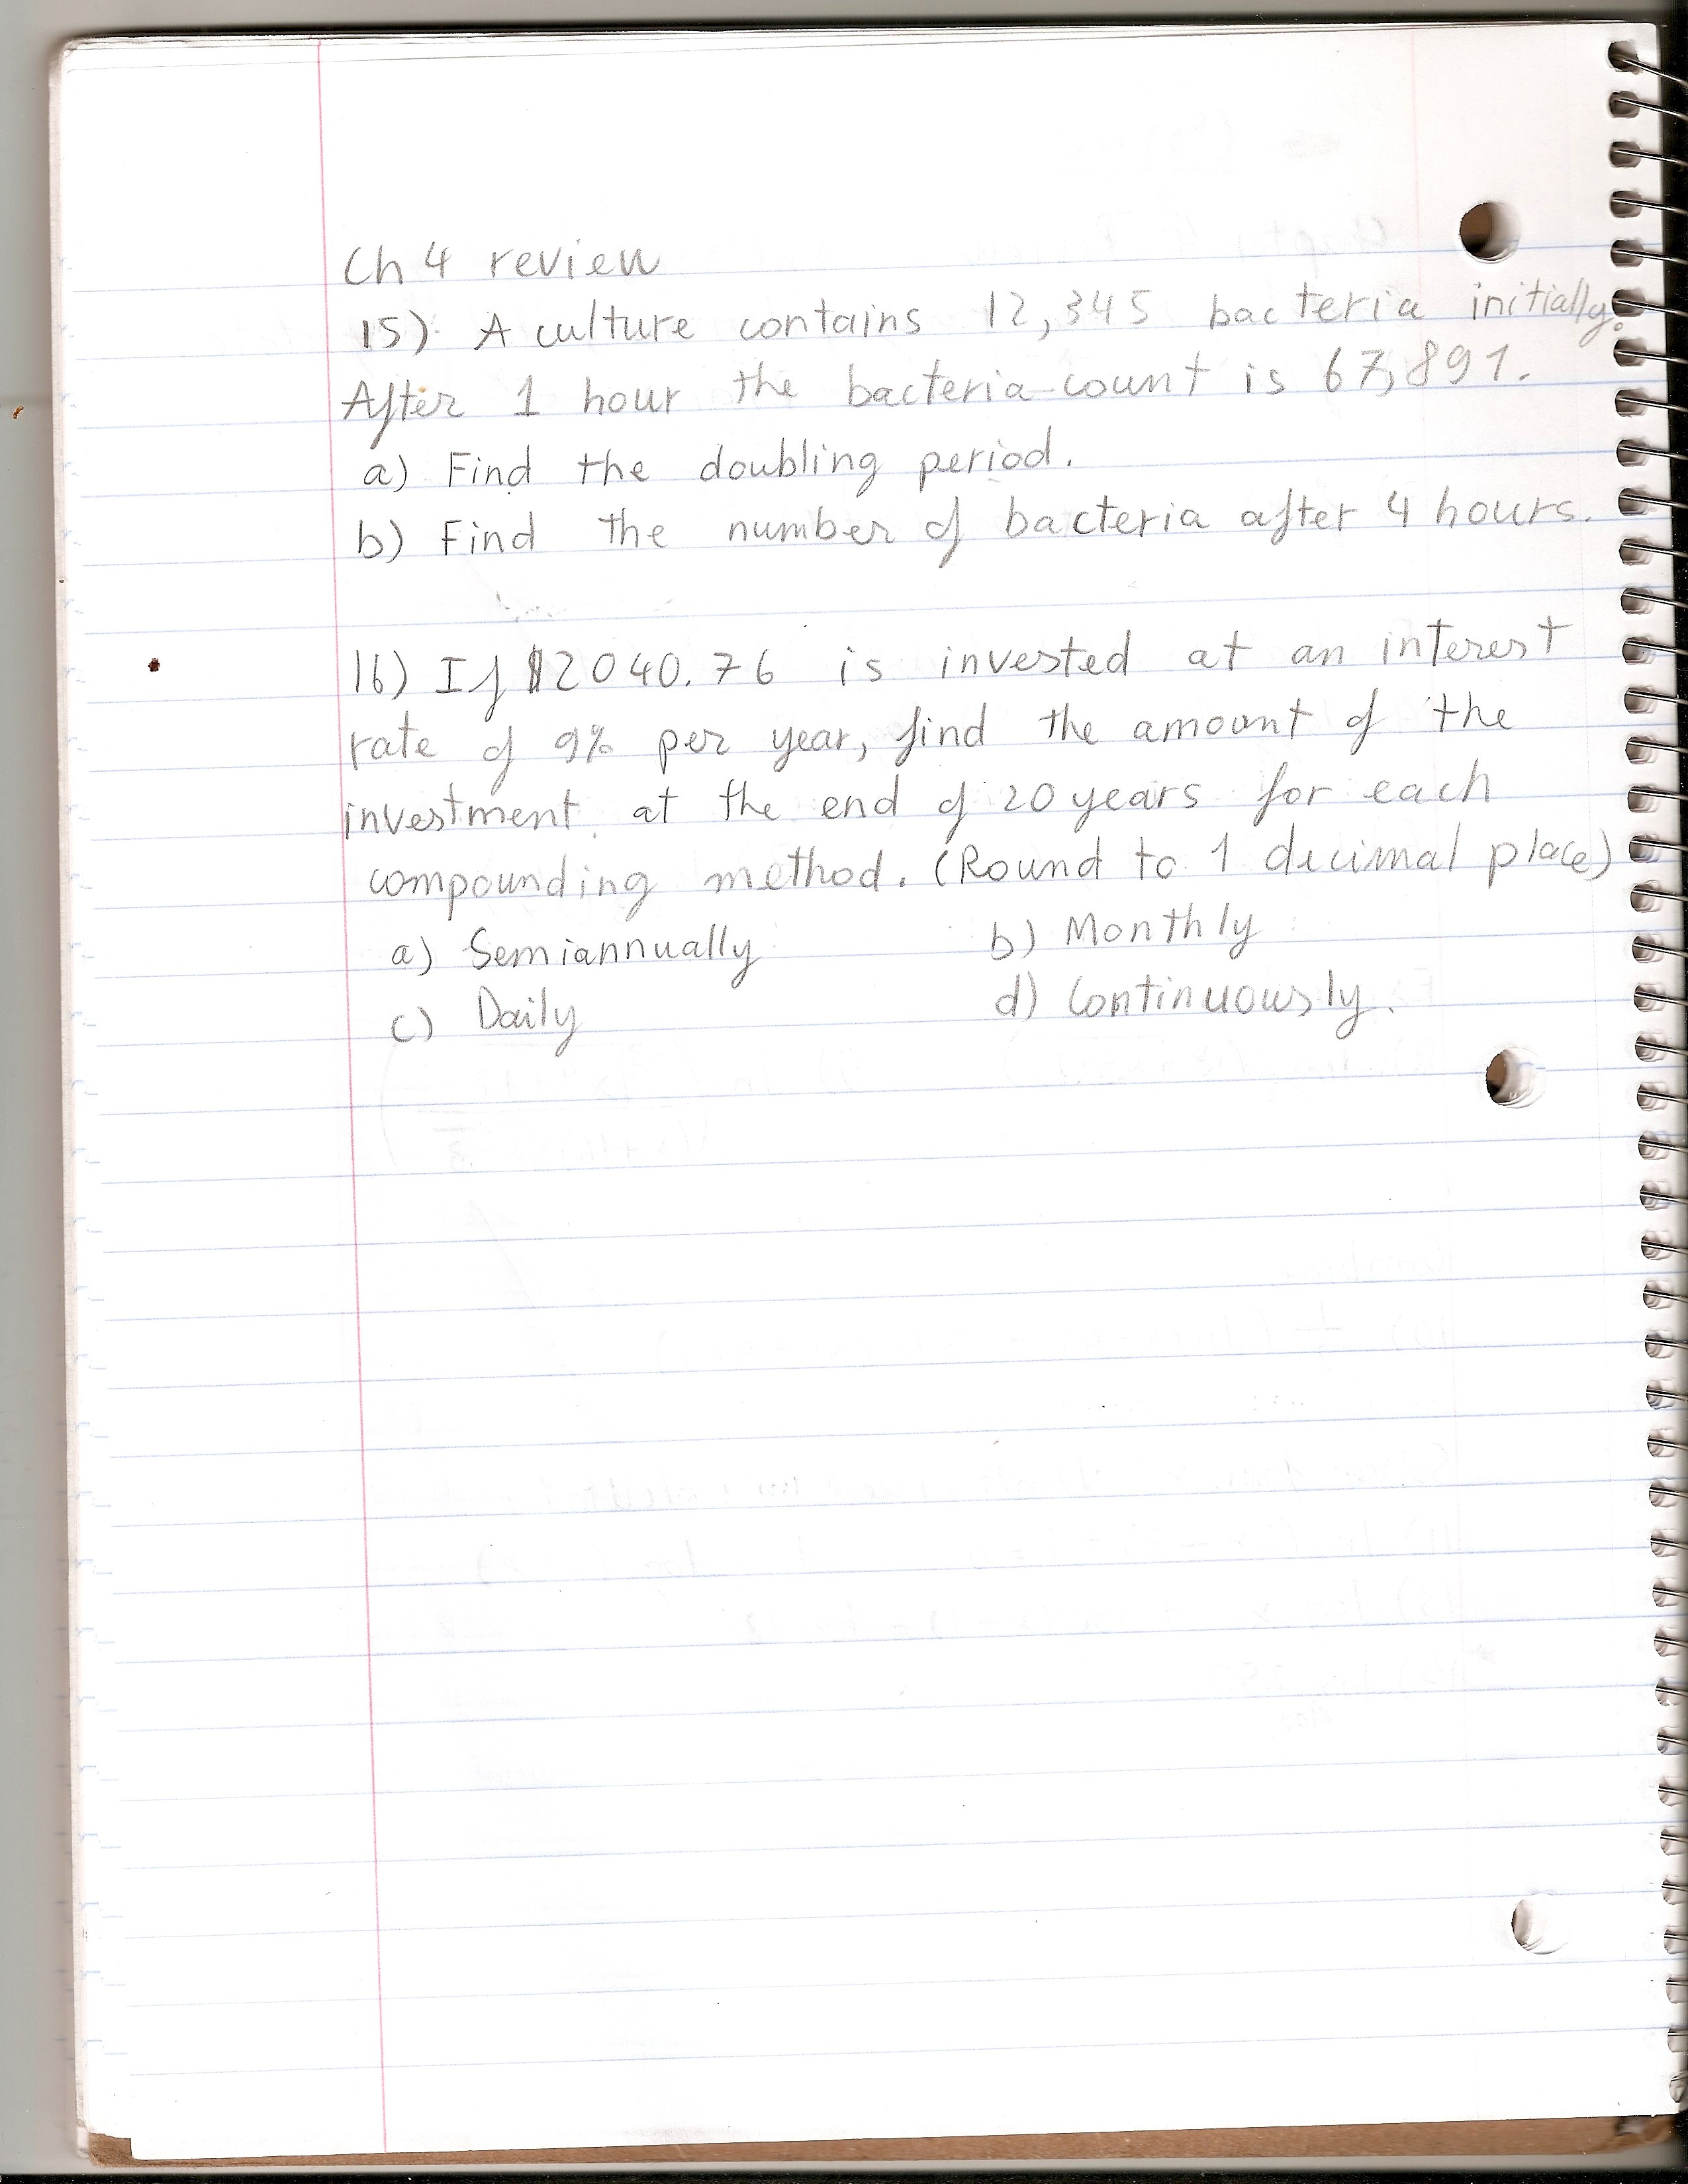 Ch 4 review
15) A culture contains 12,345 bacteria initially.
After 1 hour the bacteria count is 67,891.
a) Find the doubling period.
b) Find the number of bacteria after 4 hours.
16) If $2040.76 is invested at an interest
rate of 9% per year, find the amount of the
investment at the end of 20 years for each
compounding method. (Round to 1 decimal place)
a) Semiannually b) Monthly
c) Daily d) Continuously.